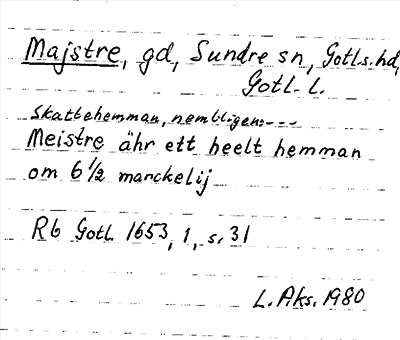 Majstre, gd, Sundre sn, Gotl. s. hd,
Gotl. L.
Skattehemman, nembligen:---
Meistre ähr ett heelt hemman
om 6 1/2 marckelij
Rb Gotl. 1653, 1, s. 31
L. Aks. 1980